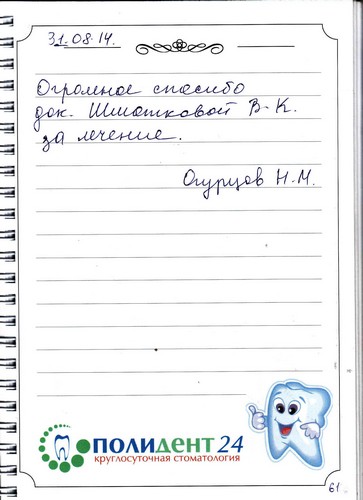 31.08.14.
Огромное спасибо
док. Шматковой В.К.
за лечение.
Огурцов Н.М.
ПОЛИДЕНТ 24
круглосуточная стоматология
61